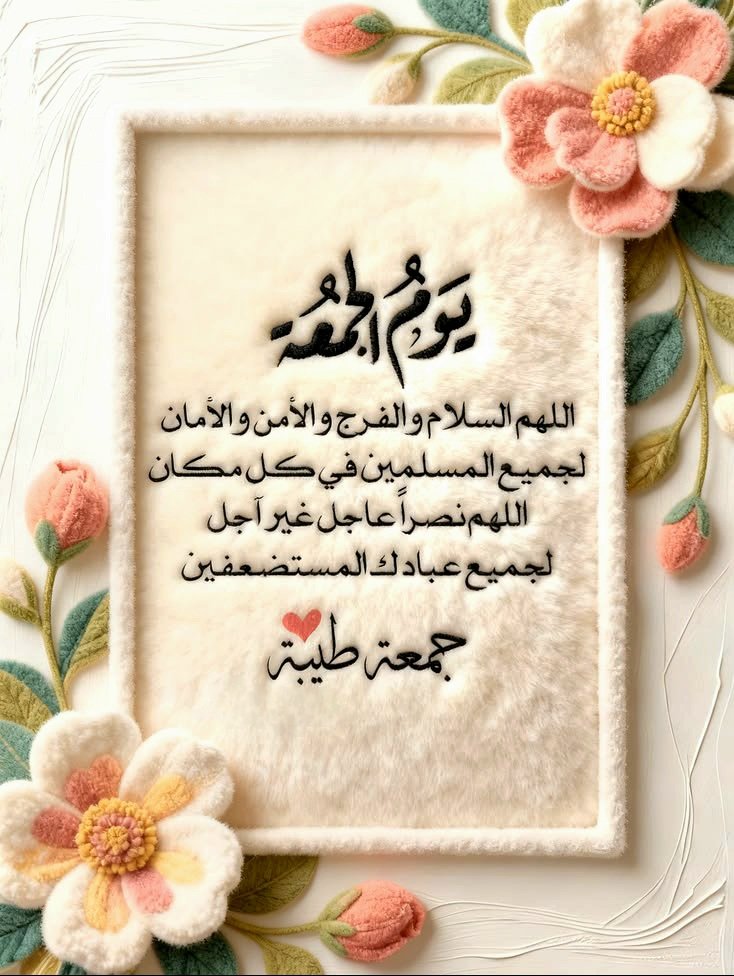 يَوَمُ الجمعة
اللهم السلام والفرج والأمن والأمان
لجميع المسلمين في كل مكان
اللهم نصراً عاجل غير آجل
لجميع عبادك المستضعفين
جمعة طيبة